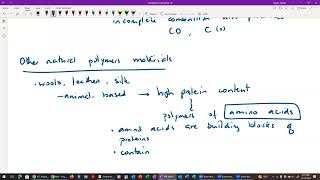 incomplete combustion
CO, C(s)
Other natural polymers materials
• wools, leather, silk
- animal-based → high protein content
polymers of amino acids
• amino acids are building blocks of
proteins
• contain